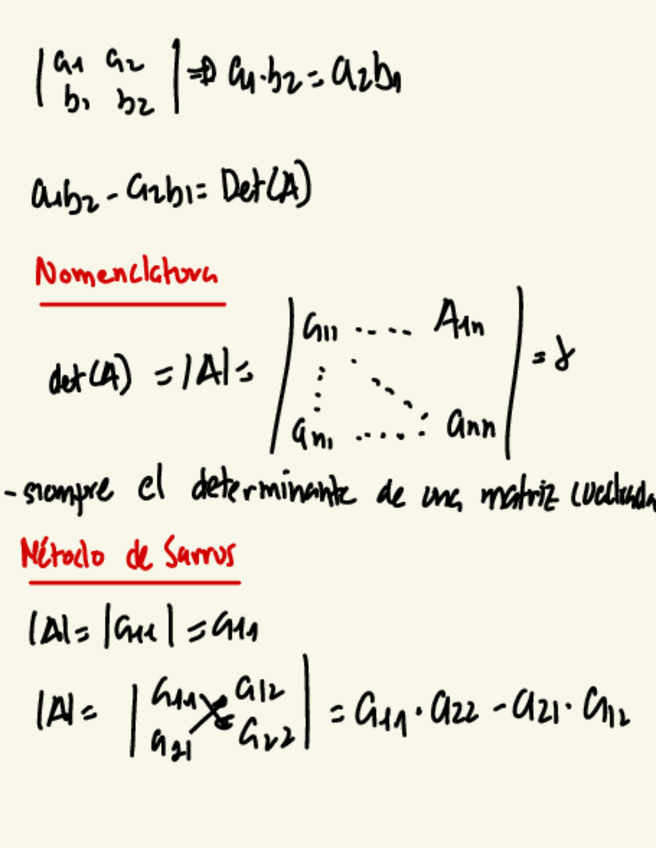 | a1 a2 | ⇒ a1·b2 = a2b1
| b1 b2 |
a1b2 - a2b1 = Det(A)
Nomenclatura
det(A) = |A| = | a11 ···· A1n | = γ
| an1 ····: ann |
- siempre el determinante de una matriz cuadrada
Método de Sarrus
|A| = |a11| = a11
|A| = | a11 a12 | = a11·a22 - a21·a12
| a21 a22 |